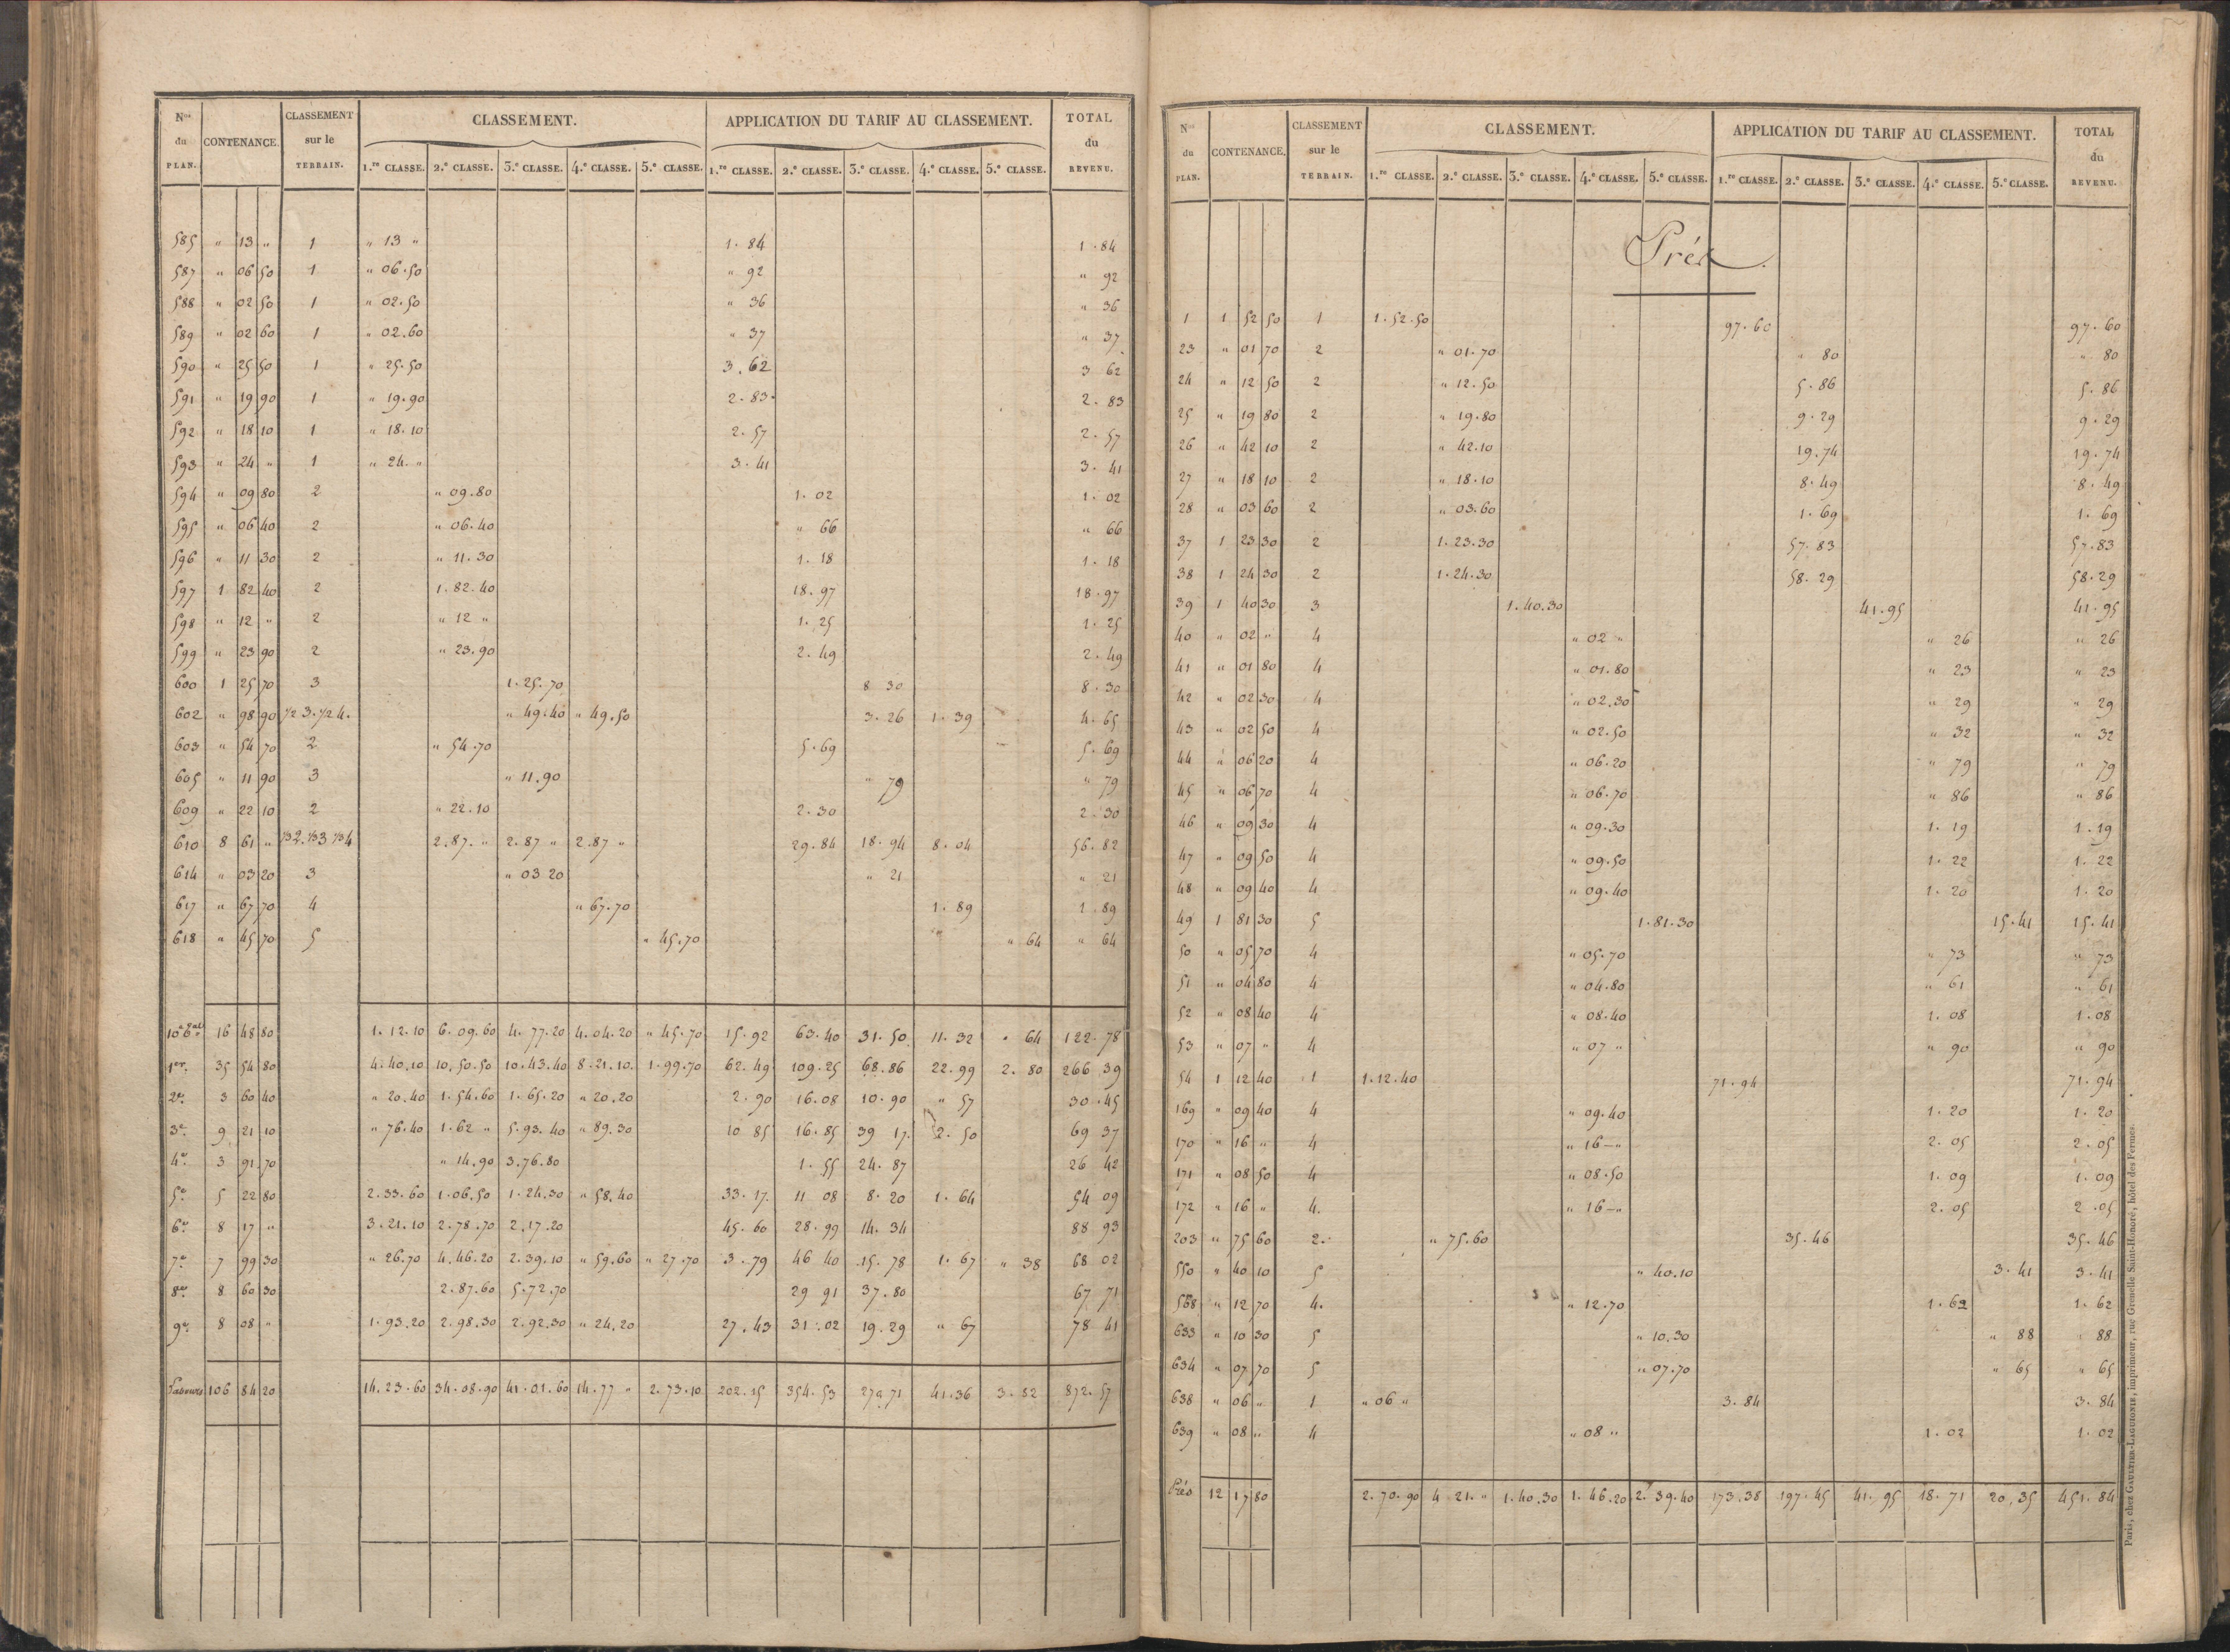 Nos du PLAN. CONTENANCE. CLASSEMENT sur le TERRAIN. CLASSEMENT. APPLICATION DU TARIF AU CLASSEMENT. TOTAL du REVENU.
1.re CLASSE. 2.e CLASSE. 3.e CLASSE. 4.e CLASSE. 5.e CLASSE. 1.re CLASSE. 2.e CLASSE. 3.e CLASSE. 4.e CLASSE. 5.e CLASSE.
585 " 13 " 1 " 13 " 1.84 1.84
587 " 06 50 1 " 06.50 " 92 " 92
588 " 02 50 1 " 02.50 " 36 " 36
589 " 02 60 1 " 02.60 " 37 " 37
590 " 25 50 1 " 25.50 3.62 3 62
591 " 19 90 1 " 19.90 2.83 2.83
592 " 18 10 1 " 18.10 2.57 2.57
593 " 24 " 1 " 24. " 3.41 3.41
594 " 09 80 2 " 09.80 1.02 1.02
595 " 06 40 2 " 06.40 " 66 " 66
596 " 11 30 2 " 11.30 1.18 1.18
597 1 82 40 2 1.82.40 18.97 18.97
598 " 12 " 2 " 12 " 1.25 1.25
599 " 23 90 2 " 23.90 2.49 2.49
600 1 25 70 3 1.25.70 8 30 8.30
602 " 98 90 1/2 3. 1/2 4. " 49.40 " 49.50 3.26 1.39 4.65
603 " 54 70 2 " 54.70 5.69 5.69
605 " 11 90 3 " 11.90 " 79 " 79
609 " 22 10 2 " 22.10 2.30 2 30
610 8 61 " 1/3 2. 1/3 3 1/3 4 2.87. " 2.87 " 2.87 " 29.84 18.94 8.04 56.82
614 " 03 20 3 " 03 20 " 21 " 21
617 " 67 70 4 " 67.70 1.89 1.89
618 " 45 70 5 " 45.70 " " 64 " 64
16 48 80 1.12.10 6.09.60 4.77.20 4.04.20 " 45.70 15.92 63.40 31.50 11.32 " 64 122.78
1er. 35 54 80 4.40.10 10.50.50 10.43.40 8.21.10. 1.99.70 62.49 109.25 68.86 22.99 2.80 266 39
2e. 3 60 40 " 20.40 1.54.60 1.65.20 " 20.20 2.90 16.08 10.90 " 57 30.45
3e. 9 21 10 " 76.40 1.62 " 5.93.40 " 89.30 10 85 16.85 39 17. 2.50 69 37
4e. 3 91 70 " 14.90 3.76.80 1.55 24.87 26 42
5e. 5 22 80 2.33.60 1.06.50 1.24.30 " 58.40 33.17. 11 08 8.20 1.64 54 09
6e. 8 17 " 3.21.10 2.78.70 2.17.20 45.60 28.99 14.34 88 93
7e. 7 99 30 " 26.70 4.46.20 2.39.10 " 59.60 " 27.70 3.79 46 40 15.78 1.67 " 38 68 02
8e. 8 60 30 2.87.60 5.72.70 29 91 37.80 67 71
9e. 8 08 " 1.93.20 2.98.30 2.92.30 " 24.20 27.43 31.02 19.29 " 67 78 41
106 84 20 14.23.60 34.08.90 41.01.60 14.77 " 2.73.10 202.15 354.53 270.71 41.36 3.82 872.57
Nos du PLAN. CONTENANCE. CLASSEMENT sur le TERRAIN. CLASSEMENT. APPLICATION DU TARIF AU CLASSEMENT. TOTAL du REVENU.
1.re CLASSE. 2.e CLASSE. 3.e CLASSE. 4.e CLASSE. 5.e CLASSE. 1.re CLASSE. 2.e CLASSE. 3.e CLASSE. 4.e CLASSE. 5.e CLASSE.
Prés.
1 1 52 50 1 1.52.50 97.60 97.60
23 " 01 70 2 " 01.70 " 80 " 80
24 " 12 50 2 " 12.50 5.86 5.86
25 " 19 80 2 " 19.80 9.29 9.29
26 " 42 10 2 " 42.10 19.74 19.74
27 " 18 10 2 " 18.10 8.49 8.49
28 " 03 60 2 " 03.60 1.69 1.69
37 1 23 30 2 1.23.30 57.83 57.83
38 1 24 30 2 1.24.30 58.29 58.29
39 1 40 30 3 1.40.30 41.95 41.95
40 " 02 " 4 " 02 " " 26 " 26
41 " 01 80 4 " 01.80 " 23 " 23
42 " 02 30 4 " 02.30 " 29 " 29
43 " 02 50 4 " 02.50 " 32 " 32
44 " 06 20 4 " 06.20 " 79 " 79
45 " 06 70 4 " 06.70 " 86 " 86
46 " 09 30 4 " 09.30 1.19 1.19
47 " 09 50 4 " 09.50 1.22 1.22
48 " 09 40 4 " 09.40 1.20 1.20
49 1 81 30 5 1.81.30 15.41 15.41
50 " 05 70 4 " 05.70 " 73 " 73
51 " 04 80 4 " 04.80 " 61 " 61
52 " 08 40 4 " 08.40 1.08 1.08
53 " 07 " 4 " 07 " " 90 " 90
54 1 12 40 1 1.12.40 71.94 71.94
169 " 09 40 4 " 09.40 1.20 1.20
170 " 16 " 4 " 16 — " 2.05 2.05
171 " 08 50 4 " 08.50 1.09 1.09
172 " 16 " 4. " 16 — " 2.05 2.05
203 " 75 60 2. " 75.60 35.46 35.46
550 " 40 10 5 " 40.10 3.41 3.41
568 " 12 70 4. " 12.70 1.62 1.62
633 " 10 30 5 " 10.30 " 88 " 88
634 " 07 70 5 " 07.70 " 65 " 65
638 " 06 " 1 " 06 " 3.84 3.84
639 " 08 " 4 " 08 " 1.02 1.02
Prés 12 17 80 2.70.90 4.21. " 1.40.30 1.46.20 2.39.40 173.38 197.45 41.95 18.71 20.35 451.84
Paris, chez GAULTIER-LAGUIONIE, imprimeur, rue Grenelle Saint-Honoré, hôtel des Fermes.